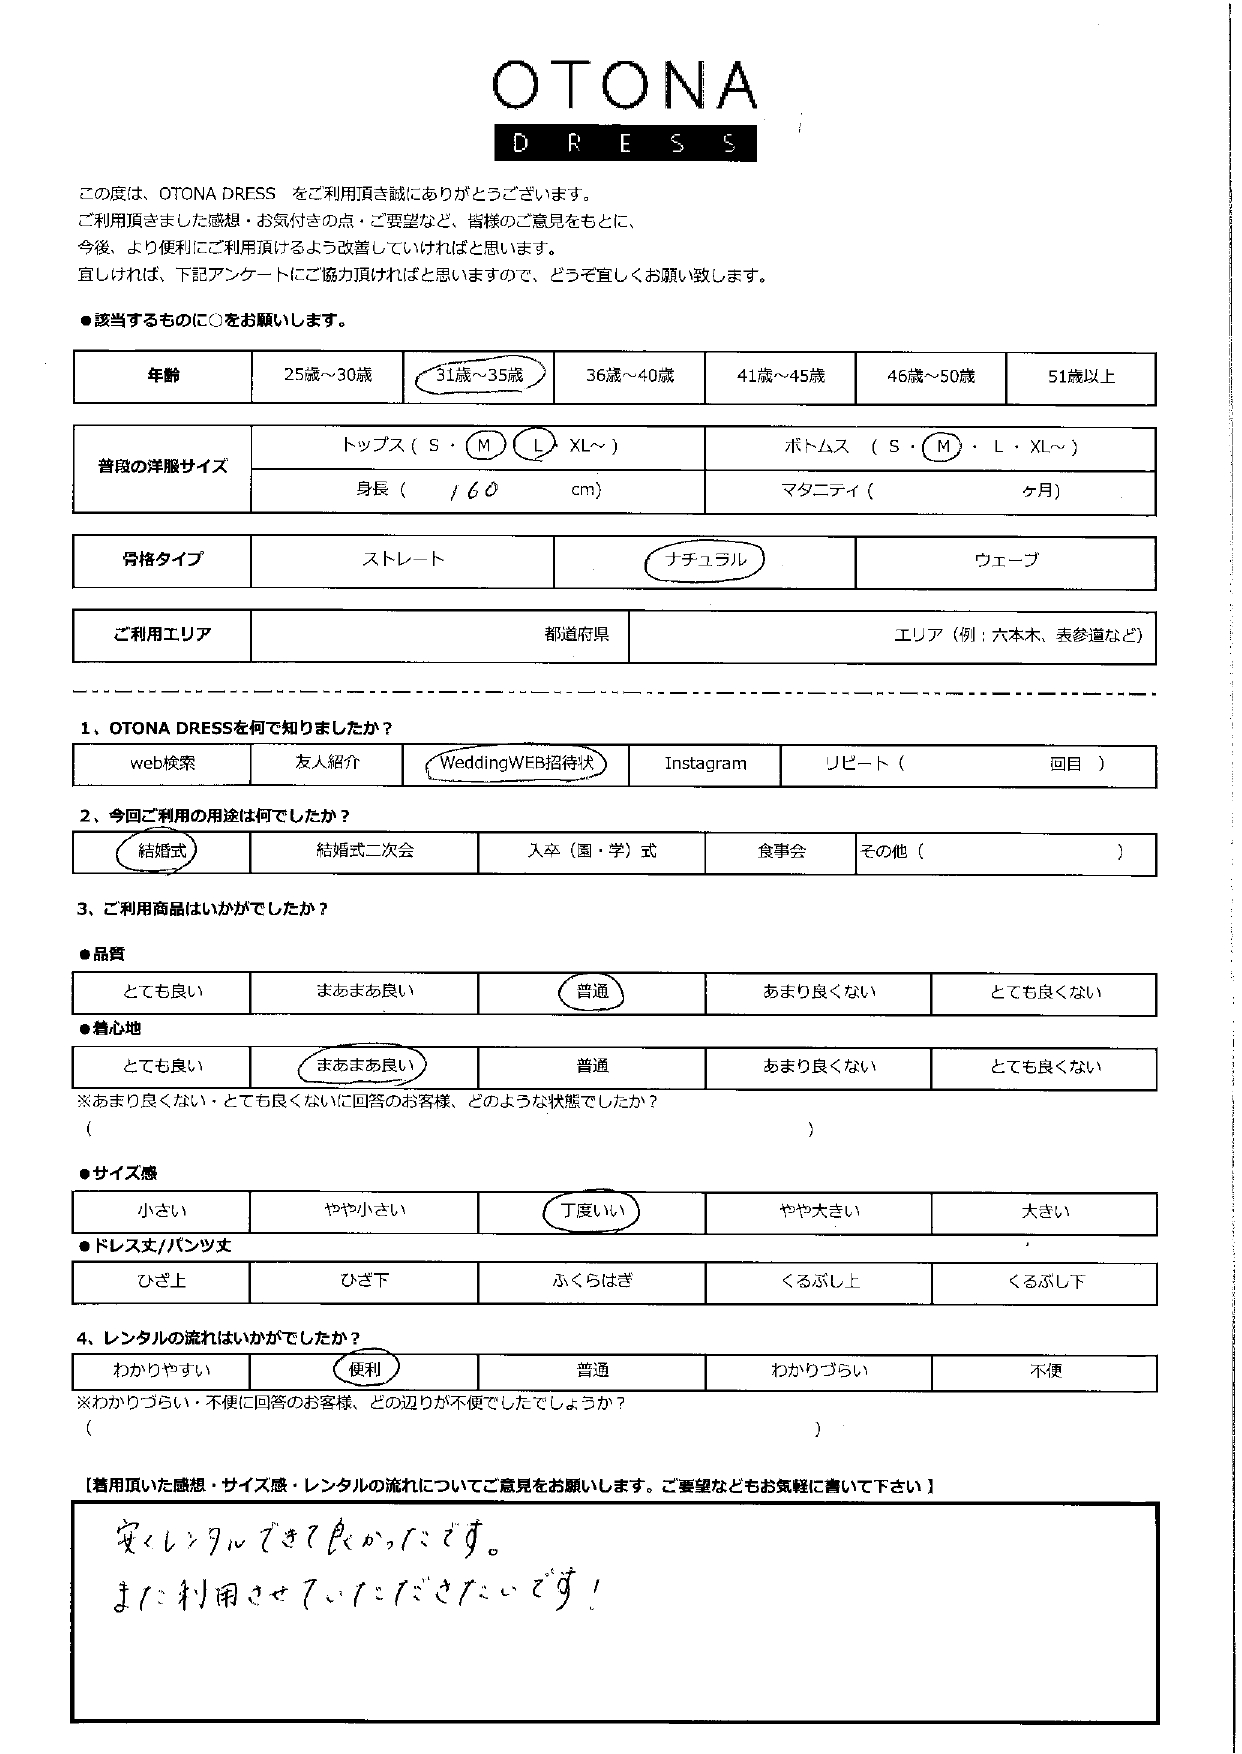 OTONA
DRESS
この度は、OTONA DRESS　をご利用頂き誠にありがとうございます。
ご利用頂きました感想・お気付きの点・ご要望など、皆様のご意見をもとに、
今後、より便利にご利用頂けるよう改善していければと思います。
宜しければ、下記アンケートにご協力頂ければと思いますので、どうぞ宜しくお願い致します。
●該当するものに○をお願いします。
年齢 25歳～30歳 31歳～35歳 36歳～40歳 41歳～45歳 46歳～50歳 51歳以上
普段の洋服サイズ
トップス ( S ・ M ・ L ・ XL～ ) ボトムス ( S ・ M ・ L ・ XL～ )
身長 ( 160 cm) マタニティ ( ヶ月)
骨格タイプ ストレート ナチュラル ウェーブ
ご利用エリア 都道府県 エリア（例：六本木、表参道など）
1、OTONA DRESSを何で知りましたか？
web検索 友人紹介 WeddingWEB招待状 Instagram リピート ( 回目 )
2、今回ご利用の用途は何でしたか？
結婚式 結婚式二次会 入卒（園・学）式 食事会 その他 ( )
3、ご利用商品はいかがでしたか？
●品質
とても良い まあまあ良い 普通 あまり良くない とても良くない
●着心地
とても良い まあまあ良い 普通 あまり良くない とても良くない
※あまり良くない・とても良くないに回答のお客様、どのような状態でしたか？
( )
●サイズ感
小さい やや小さい 丁度いい やや大きい 大きい
●ドレス丈/パンツ丈
ひざ上 ひざ下 ふくらはぎ くるぶし上 くるぶし下
4、レンタルの流れはいかがでしたか？
わかりやすい 便利 普通 わかりづらい 不便
※わかりづらい・不便に回答のお客様、どの辺りが不便でしたでしょうか？
( )
【着用頂いた感想・サイズ感・レンタルの流れについてご意見をお願いします。ご要望などもお気軽に書いて下さい 】
安くレンタルできて良かったです。
また利用させていただきたいです！